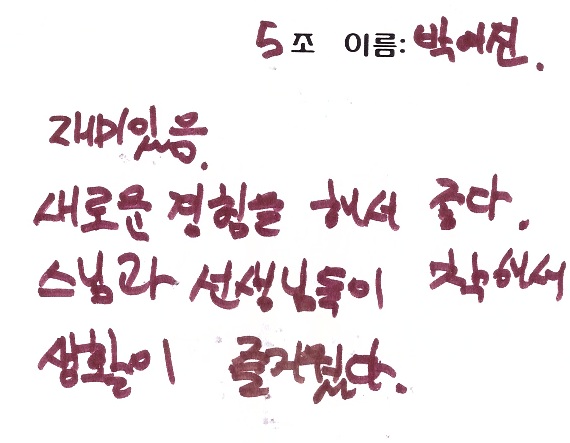 5조 이름: 박여진.
재미있음.
새로운 경험을 해서 좋다.
스님과 선생님들이 착해서
생활이 즐거웠다.